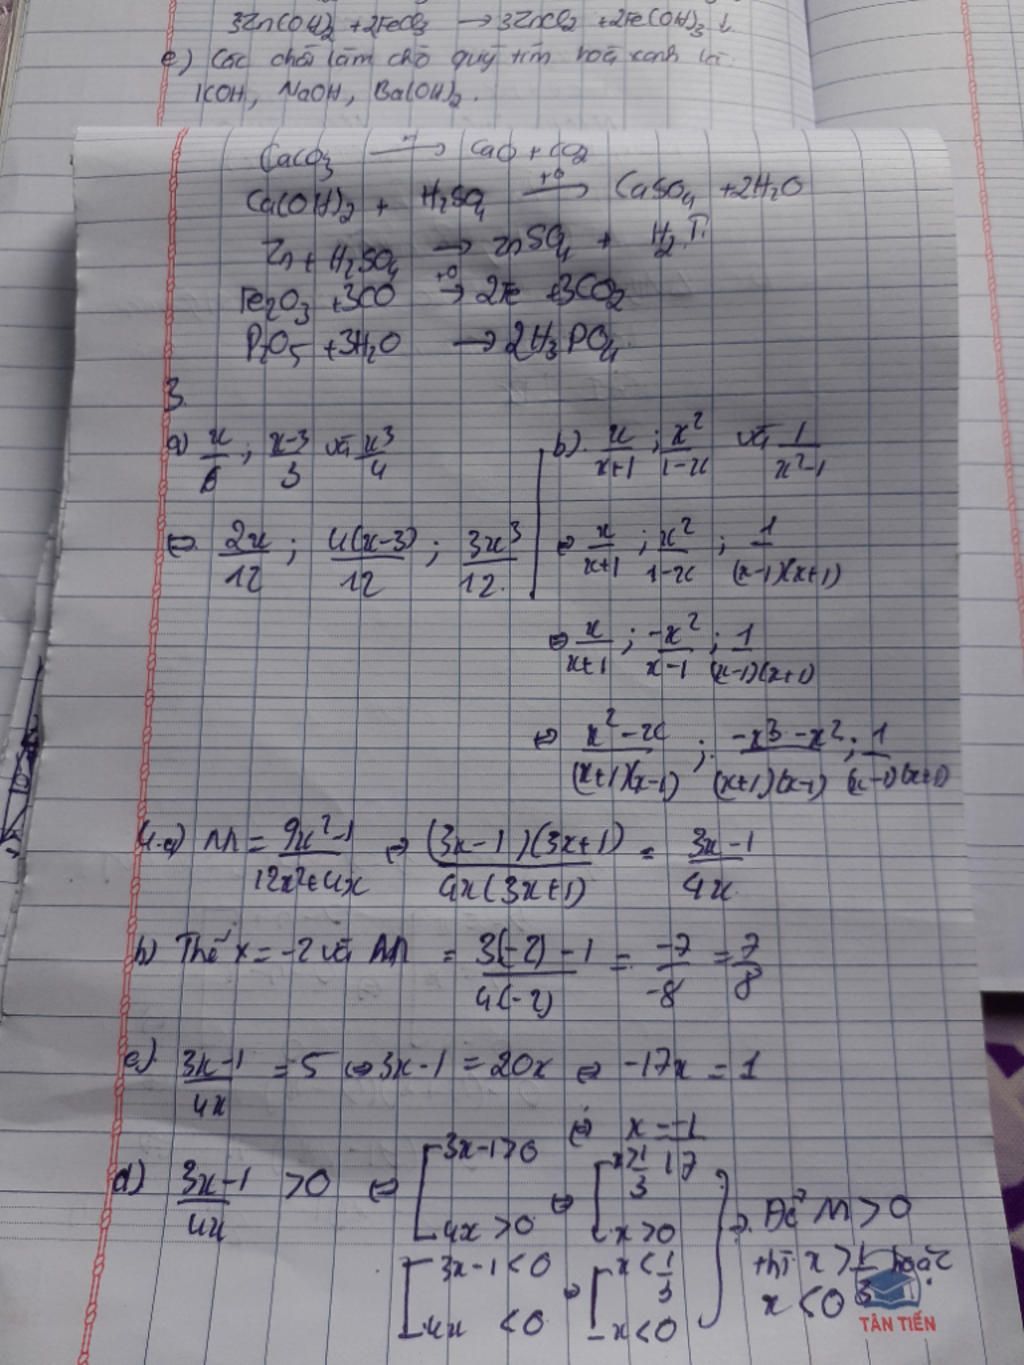 3Zn(OH)₂ + 2FeCl₃ → 3ZnCl₂ + 2Fe(OH)₃ ↓
e) Các chất làm cho quỳ tím hoá xanh là:
KOH, NaOH, Ba(OH)₂.
CaCO₃ → CaO + CO₂
Ca(OH)₂ + H₂SO₄ →(+0) CaSO₄ + 2H₂O
Zn + H₂SO₄ → ZnSO₄ + H₂↑.
Fe₂O₃ + 3CO →(+0) 2Fe + 3CO₂
P₂O₅ + 3H₂O → 2H₃PO₄
3.
a) x/6 ; x-3/3 và x³/4
⇔ 2x/12 ; 4(x-3)/12 ; 3x³/12.
b). x/x+1 ; x²/1-x và 1/x²-1
⇔ x/x+1 ; x²/1-x ; 1/(x-1)(x+1)
⇔ x/x+1 ; -x²/x-1 ; 1/(x-1)(x+1)
⇔ x²-x/(x+1)(x-1) ; -x³-x²/(x+1)(x-1) ; 1/(x-1)(x+1)
4.a) M = 9x²-1/12x²+4x ⇔ (3x-1)(3x+1)/4x(3x+1) = 3x-1/4x
b) Thế x = -2 và M = 3(-2)-1/4(-2) = -7/-8 = 7/8
c) 3x-1/4x = 5 ⇔ 3x-1 = 20x ⇔ -17x = 1
⇔ x = -1/17
d) 3x-1/4x > 0 ⇔ [3x-1>0 4x>0 ⇔ [x>1/3 x>0
[3x-1<0 4x<0 ⇔ [x<1/3 x<0
⇒ Để M > 0
thì x > 1/3 hoặc
x < 0
TÂN TIẾN